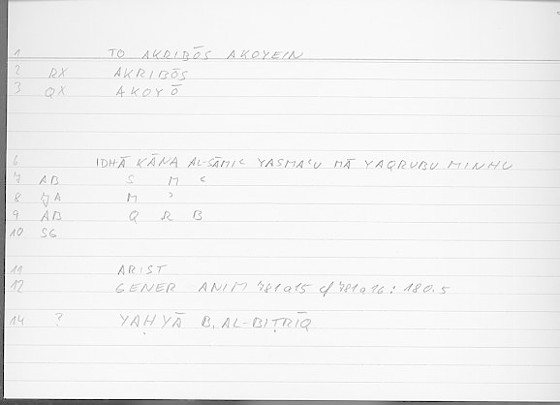 1 TO AKRIBŌS AKOYEIN
2 RX AKRIBŌS
3 QX AKOYŌ
6 IDHĀ KĀNA AL-SĀMIʿ YASMAʿU MĀ YAQRUBU MINHU
7 AB S M ʿ
8 A M ʾ
9 AB Q R B
10 SG
11 ARIST
12 GENER ANIM 781a15 cf 781a16 : 180.5
14 ? YAḤYĀ B. AL-BIṬRĪQ